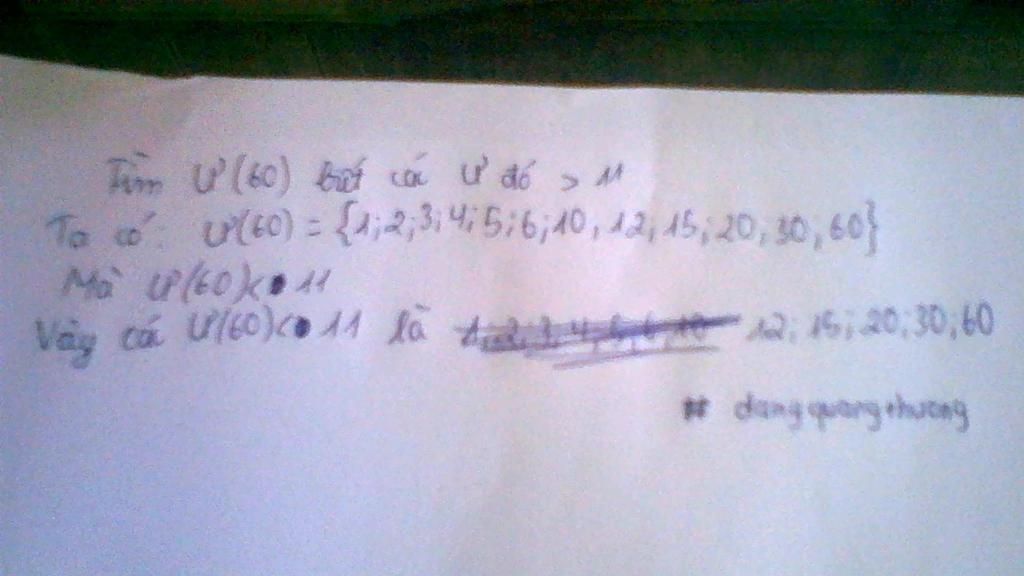 Tìm Ư(60) biết các Ư đó > 11
Ta có: Ư(60) = {1;2;3;4;5;6;10,12;15;20;30;60}
Mà Ư(60)< 11
Vậy các Ư(60)< 11 là 1;2;3;4;5;6;10 12;15;20;30;60
# dangquangthuong